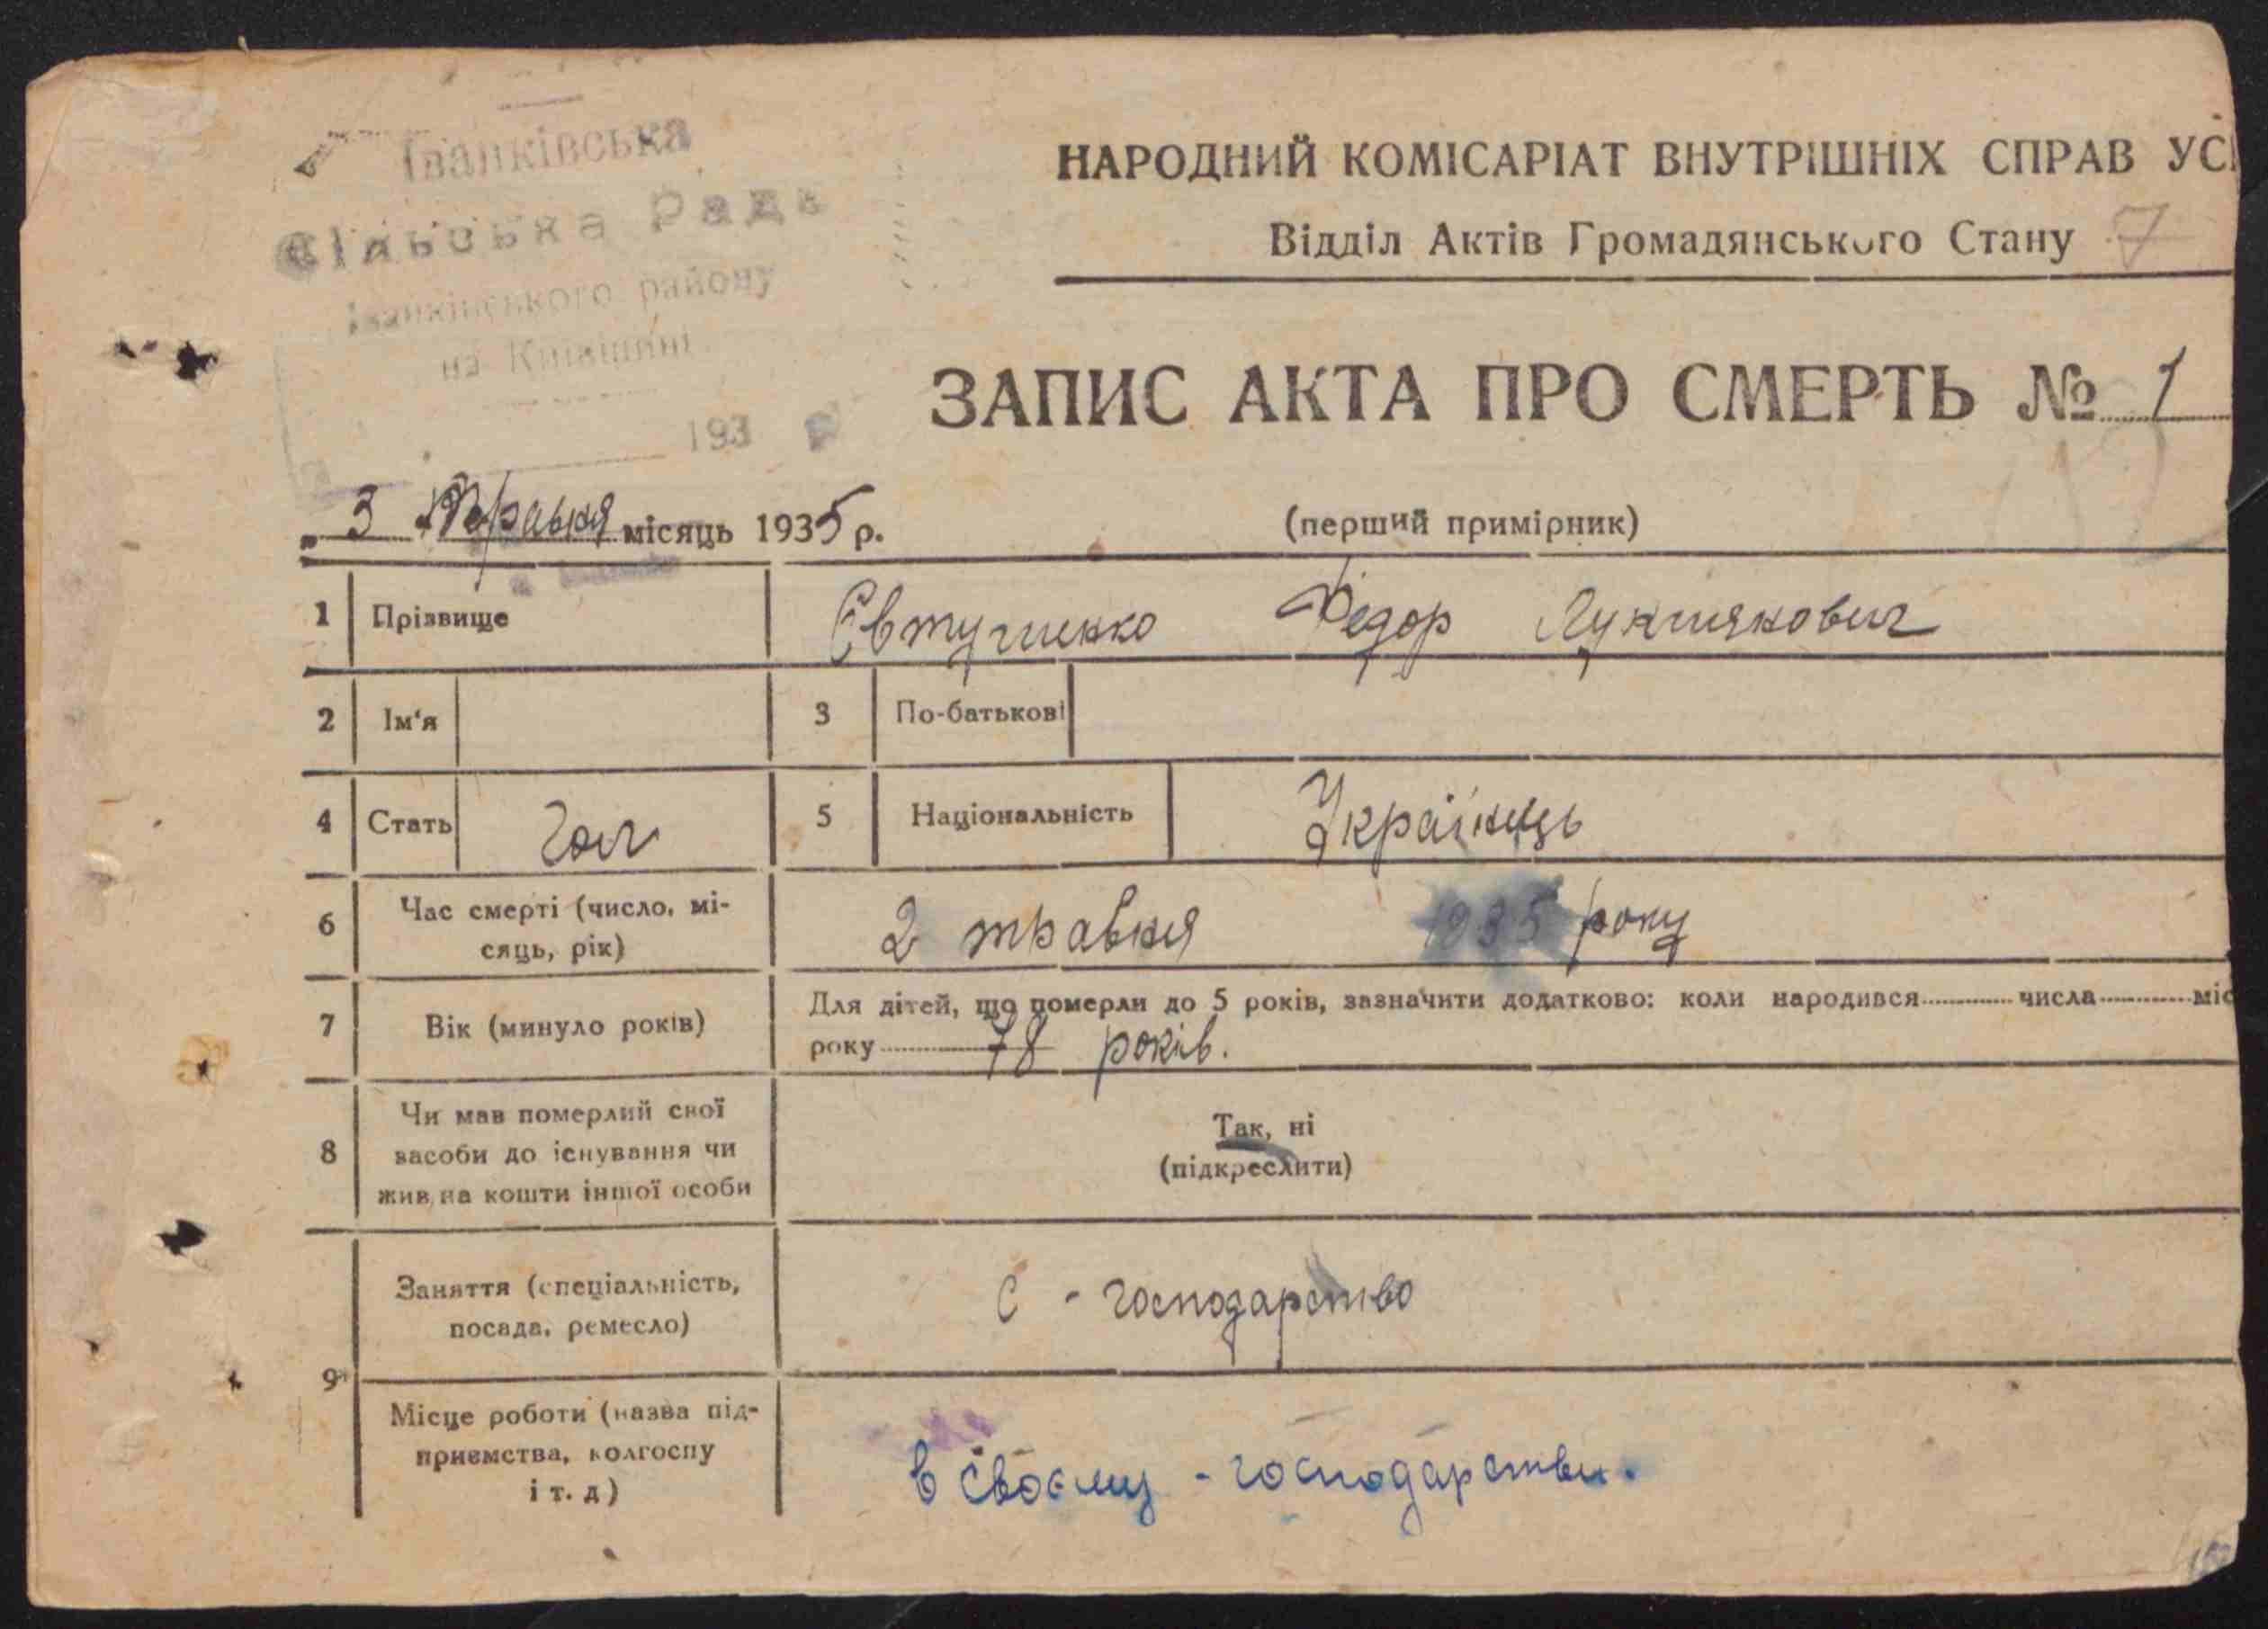 Іванківська
Сільська Рада
Іванківського району
на Київщині
193 р
НАРОДНИЙ КОМІСАРІАТ ВНУТРІШНІХ СПРАВ УС
Відділ Актів Громадянського Стану 7
ЗАПИС АКТА ПРО СМЕРТЬ № 1
3 Травня місяць 1935 р.
(перший примірник)
1 Прізвище Євтушенко Федор Лукшякович
2 Ім'я 3 По-батькові
4 Стать Чол 5 Національність Українець
6 Час смерті (число, мі-
сяць, рік) 2 травня 1935 року
7 Вік (минуло років) Для дітей, що померли до 5 років, зазначити додатково: коли народився числа міс
року 78 років.
8 Чи мав померлий свої
засоби до існування чи
жив на кошти іншої особи
Так, ні
(підкреслити)
9 Заняття (спеціальність,
посада, ремесло) С - господарство
Місце роботи (назва під-
приємства, колгоспу
і т. д)
в своєму - господарстви.